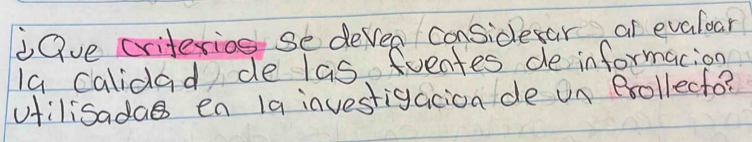 ¿Que criterios se deven considerar al evaluar
la calidad de las fuentes de informacion
utilisadas en la investigacion de un Prollecto?